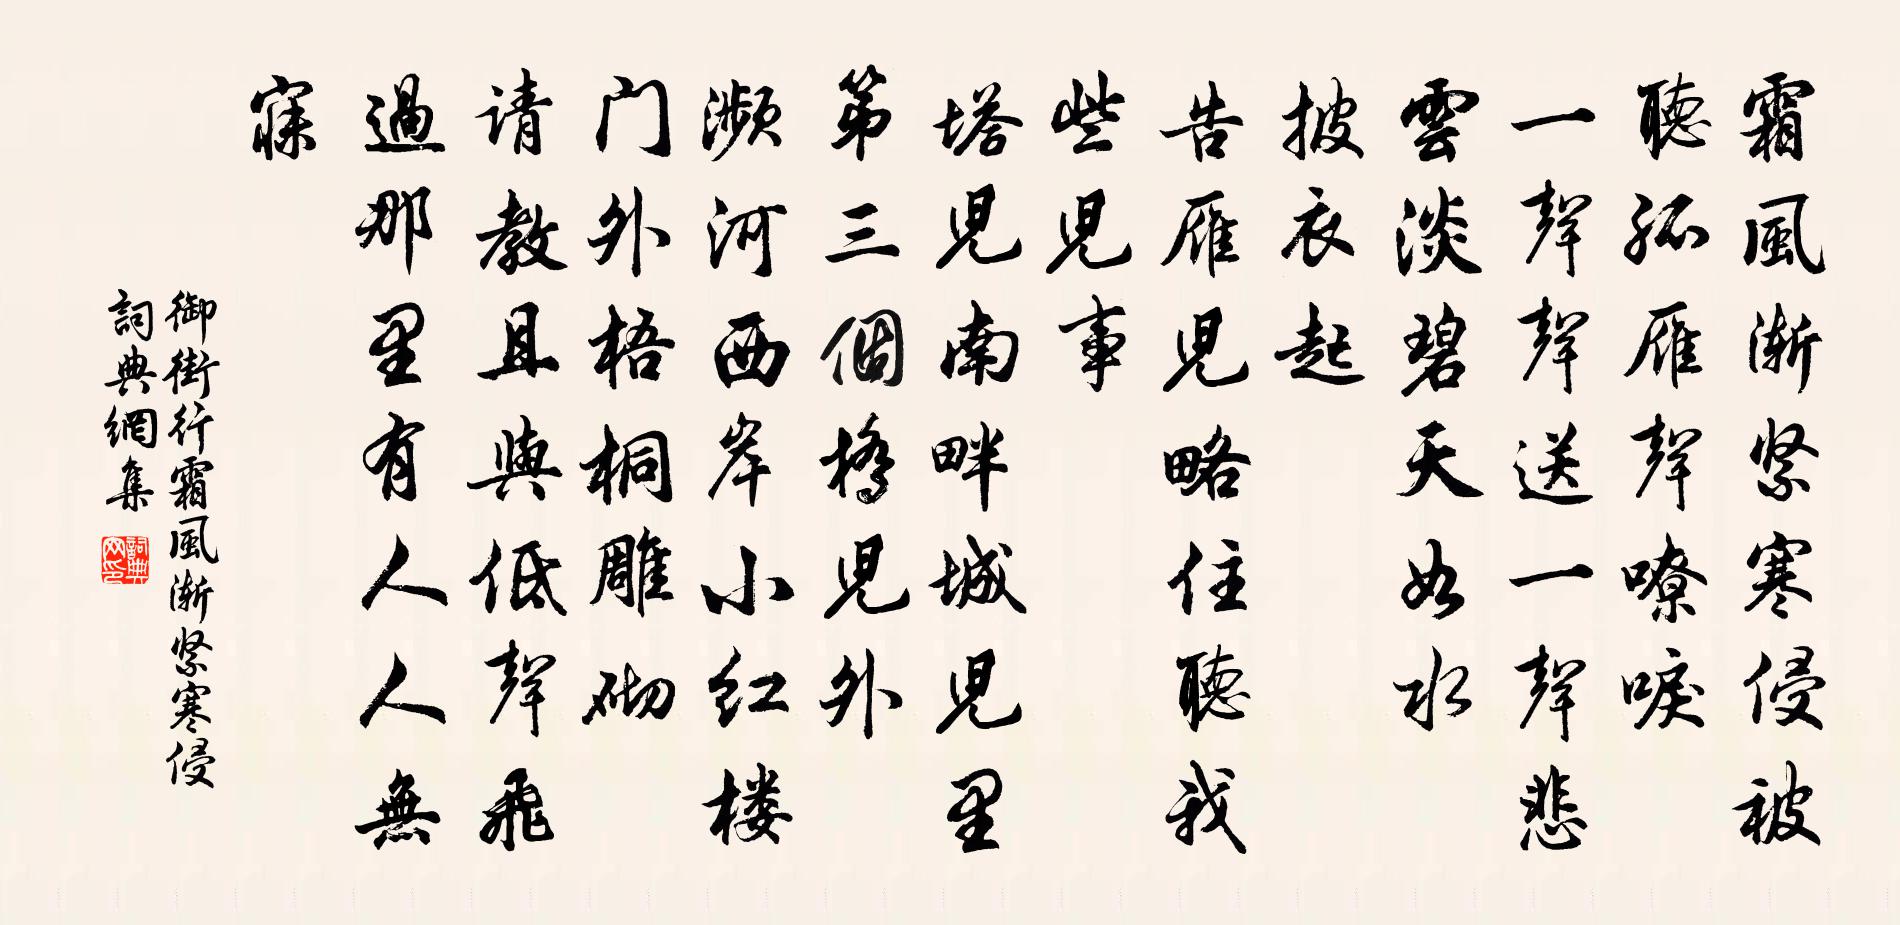 霜風渐紧寒侵被
聽孤雁聲嘹唳
一聲聲送一聲悲
雲淡碧天如水
披衣起
告雁兒略住聽我
些兒事
塔兒南畔城兒里
第三個橋兒外
濒河西岸小红楼
门外梧桐雕砌
请教且與低聲飛
過那里有人人無
寐
御街行霜風渐紧寒侵
詞典網集
詞典網印